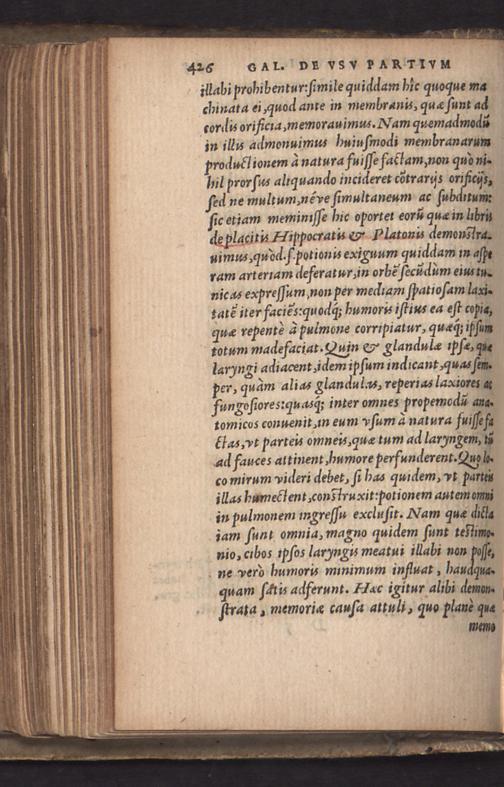 426 GAL. DE VSV PARTIVM
illabi prohibentur: simile quiddam hîc quoque ma
chinata ei, quod ante in membranis, quæ sunt ad
cordis orificia, memorauimus. Nam quemadmodũ
in illis admonuimus huiusmodi membranarum
productionem à natura fuisse factam, non quò ni-
hil prorsus aliquando incideret cõtrarijs orificijs,
sed ne multum, néve simultaneum ac subditum:
sic etiam meminisse hic oportet eorũ quæ in libris
de placitis Hippocratis & Platonis demonstra-
uimus, quòd .s. potionis exiguum quiddam in aspe
ram arteriam deferatur, in orbẽ secũdum eius tu-
nicas expressum, non per mediam spatiosam laxi-
tatẽ iter faciẽs: quodq; humoris istius ea est copia,
quæ repentè à pulmone corripiatur, quæq; ipsum
totum madefaciat. Quin & glandulæ ipsæ, quæ
laryngi adiacent, idem ipsum indicant, quas sem-
per, quàm alias glandulas, reperias laxiores ac
fungosiores: quasq; inter omnes propemodũ ana-
tomicos conuenit, in eum vsum à natura fuisse fa
ctas, vt parteis omneis, quæ tum ad laryngem, tũ
ad fauces attinent, humore perfunderent. Quo lo-
co mirum videri debet, si has quidem, vt parteis
illas humectent, construxit: potionem autem omni
in pulmonem ingressu exclusit. Nam quæ dicta
iam sunt omnia, magno quidem sunt testimo-
nio, cibos ipsos laryngis meatui illabi non posse,
ne verò humoris minimum influat, haudqua-
quam satis adferunt. Hæc igitur alibi demon-
strata, memoriæ causa attuli, quo planè quæ
memo